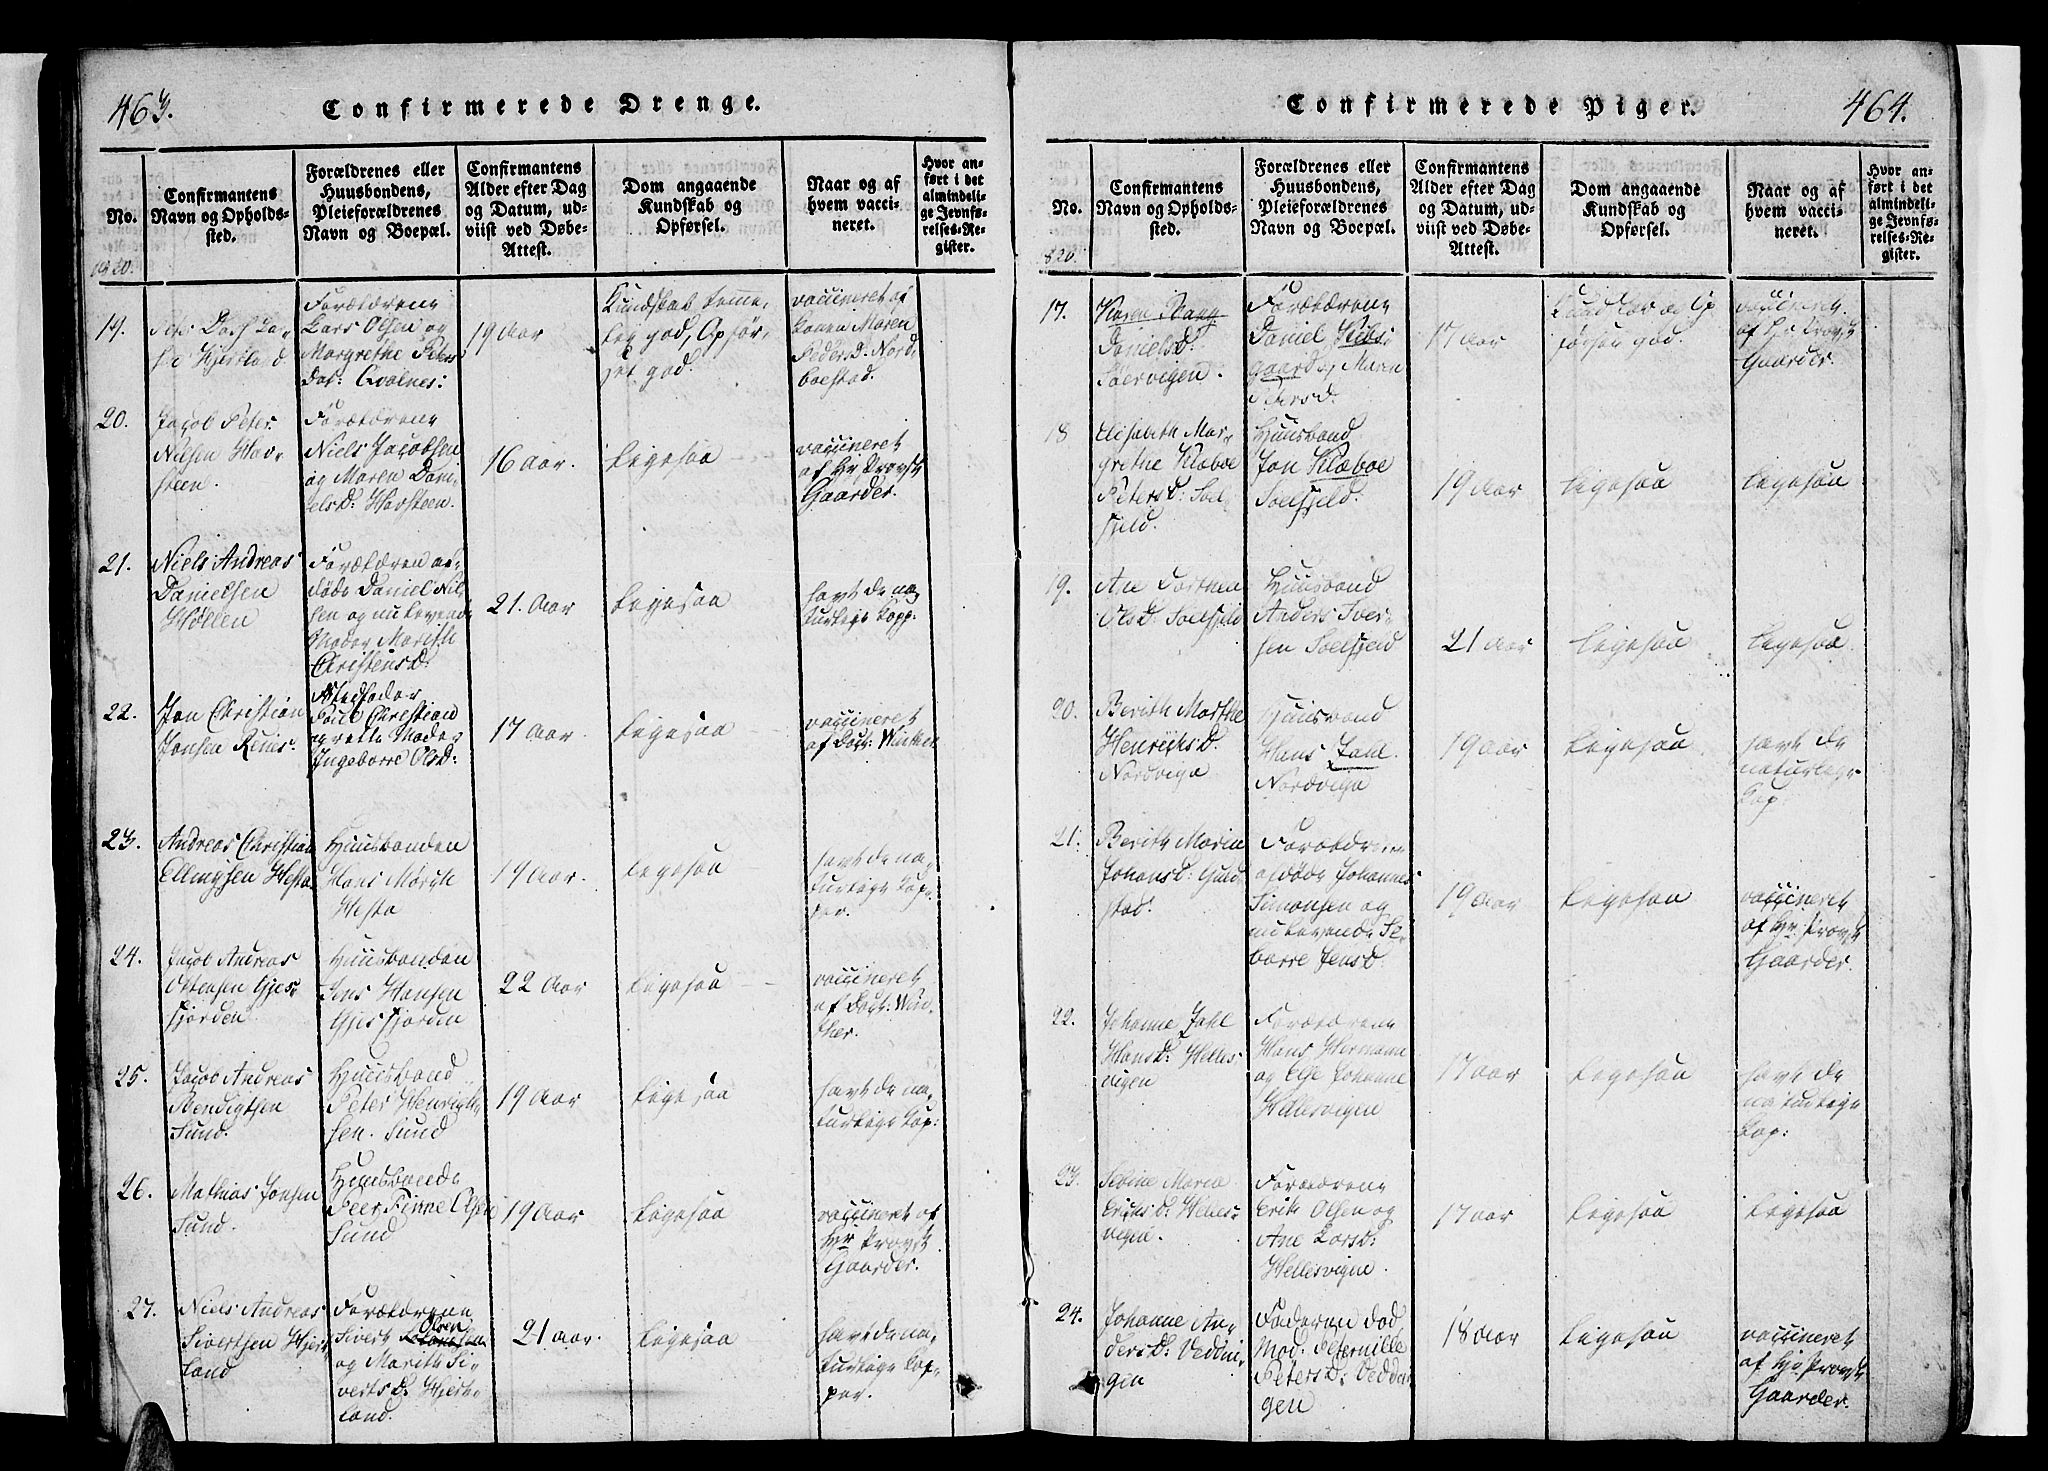 463.
Confirmerede Drenge.
No.
Confirmantens
Navn og Opholds-
sted.
Forældrenes eller
Huusbondens,
Pleieforældrenes
Navn og Boepæl.
Confirmantens
Alder efter Dag
og Datum, ud-
viist ved Døbe-
Attest.
Dom angaaende
Kundskab og
Opførsel.
Naar og af
hvem vacci-
neret.
Hvor an-
ført i det
almindeli-
ge Jevnfø-
relses-Re-
gister.
1820.
19.
Forældrene
Lars Olsen og
Margrethe Peders
Dat: Qvalnes:
19 Aar
Kundskab temme-
lig god, Opfør-
sel god.
vaccineret af
Konen Maren
Pedersd. Nord
boestad.
20.
Jacob Peter
Nilsen Hav-
steen.
Forældrene
Niels Jacobsen
og Maren Dani-
elsd: Havsteen.
16 Aar.
Ligesaa
vaccineret
af Hr Provst
Gaarder.
21.
Niels Andreas
Danielsen
Forældren af-
døde Daniel Nil-
sen og nu levende
Moder Marith
Christensd.
21. Aar
Ligesaa
havt de na-
turlige Kopp:
22.
Jon Christian
Jonsen Reines:
Stedfader
Poul Christian
og rette Moder
Ingeborre Olsd:
17 Aar.
Ligesaa
vaccineret
af Doct: Winther
23.
Andreas Christian
Ellingsen Hestø
Huusbonden
Hans Moryk
Hestø
19 Aar.
Ligesaa
havt de na-
turlige Kop-
per.
24.
Jacob Andreas
Ottensen Gjes-
fjorden
Huusbonden
Jens Hansen
Gjesfjorden
22 Aar
Ligesaa
vaccineret
af Doct: Win-
ther.
25.
Jacob Andreas
Bendigtsen
Sund.
Huusbond
Peter Henrich-
sen. Sund
19 Aar
Ligesaa
havt de na-
turlige Kop:
26.
Mathias Jonsen
Sund.
Huusbonde
Peer Finne Olsen
Sund
19 Aar
Ligesaa
vaccineret af
Hr Provst
Gaarder.
27.
Niels Andreas
Sivertsen Hjert-
land
Forældrene
Sivert Olsen
og Marith Si-
vertsd: Hjert-
land.
21 aar.
Ligesaa
havt de na-
turlige Kop-
per.
464.
Confirmerede Piger.
No.
Confirmantens
Navn og Opholds-
sted.
Forældrenes eller
Huusbondens,
Pleieforældrenes
Navn og Boepæl.
Confirmantens
Alder efter Dag
og Datum, ud-
viist ved Døbe-
Attest.
Dom angaaende
Kundskab og
Opførsel.
Naar og af
hvem vacci-
neret.
Hvor an-
ført i det
almindeli-
ge Jevnfø-
relses-Re-
gister.
820.
17.
Karen
Danielsd:
Søervigen.
Forældrene
Daniel Kibs-
gaard, Maren
Petersd.
17 Aar
Kundskab og Op-
førsel god.
vaccineret
af Hr Provst
Gaarder.
18
Elisabeth Mar-
grethe Klæboe
Petersd: Soel-
fjeld.
Huusbond
Jon Klæboe
Soelfjeld.
19 Aar
Ligesaa
Ligesaa
19.
Ane Dorthea
Olsd: Soelfjeld
Huusbond
Anders Iver-
sen Soelfjeld
21 Aar
Ligesaa
Ligesaa
20.
Berith Marthe
Henrichsd.
Nordvigen
Huusbond
Hans Zahl
Nordvigen
19 Aar
Ligesaa
havt de
naturlige
Kop:
21.
Berith Maria
Johansd: Guld-
stad.
Forældrene
afdøde Johannes
Simonsen og
nulevende Se-
borre Jensd.
19 Aar
Ligesaa
vaccineret
af Hr Provst
Gaarder.
22.
Johanne Zahl
Hansd: Helles-
vigen
Forældrene
Hans Hermann
og Else Johanne
Hellesvigen
17 aar
Ligesaa
havt de
naturlige
Kop:
23.
Sirine Maria
Ericsd: Helles-
vigen.
Forældrene
Erik Olsen og
Ane Larsd:
Hellesvigen.
17 aar
Ligesaa
Ligesaa
24.
Johanne An-
dersd: Vedvi-
gen
Faderen død
Mod: Pernille
Petersd: Vedvi-
gen
18 Aar
Ligesaa
vaccineret
af Hr Provst
Gaarder.